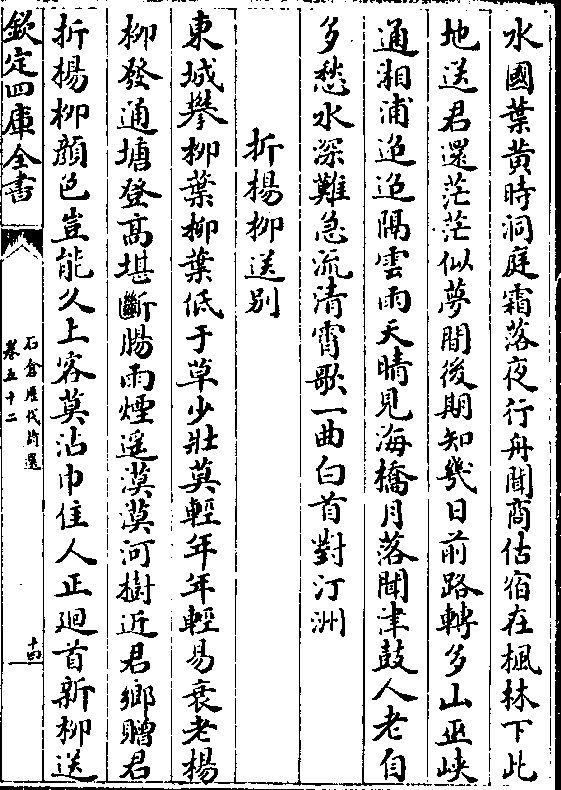 水國葉黃時洞庭霜落夜行舟聞商估宿在楓林下此
地送君還茫茫似夢間後期知幾日前路轉多山巫峽
通湘浦迢迢隔雲雨天晴見海橋月落聞津鼓人老自
多愁水深難急流清宵歌一曲白首對汀洲
折楊柳送別
東城攀柳葉柳葉低于草少壯莫輕年年輕易衰老楊
柳發通塘登高堪斷腸雨煙遥漠漠河樹近君鄉贈君
折楊柳顔色豈能久上客莫沾巾佳人正廻首新柳送
欽定四庫全書
石倉歷代詩選
卷五十二
十四